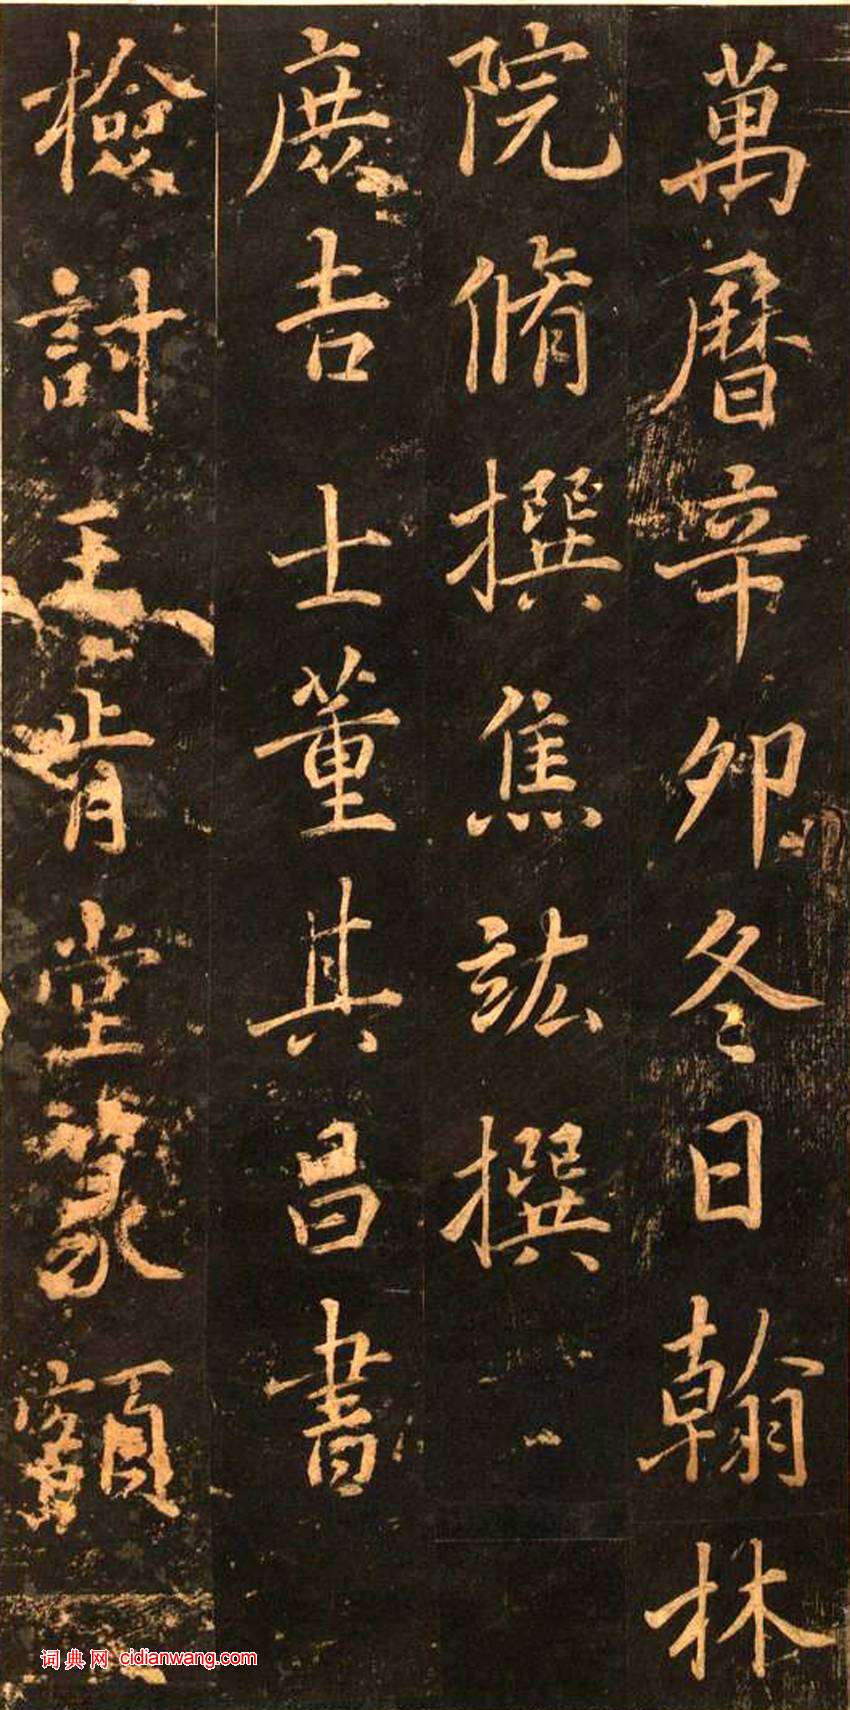 萬曆辛卯冬日翰林
院脩撰焦竑撰
庶吉士董其昌書
檢討王肯堂篆額
词典网 cidianwang.com